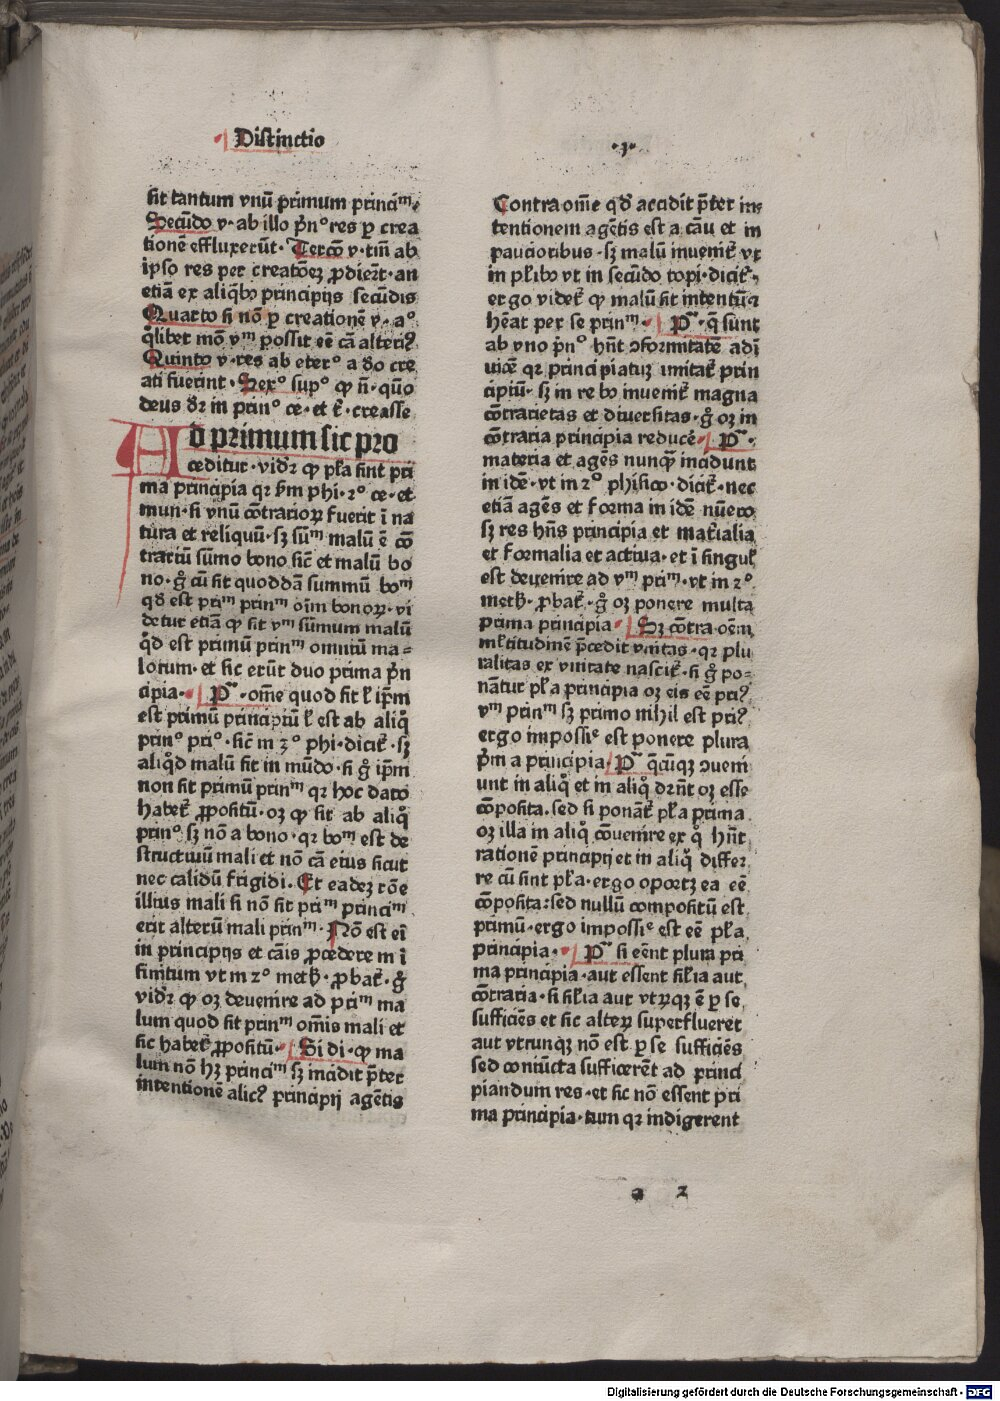 Distinctio
·j·
sit tantum vnũ primum principͫ.
Secũdo v· ab illo p̃nº res p̲ crea
tionẽ effluxerũt· Tercõ v· tm̃ ab
ipso res per creatõeꝫ ꝓdier̃t· an
etiã ex aliq̃bo principijs secũdis
Quarto si nõ p̲ creationẽ v· aº
q̃libet mõ vͫ possit eẽ cã alteri?
Quinto v· res ab eterº a deo cre
ati fuerint· Sexº supº ꝙ ñ· quõ
deus dr̃ in prinº ce· et t̃· creasse
AD primum sic pro
ceditur· vidr̃ ꝙ pła sint pri
ma principia qꝛ sm̃ phi· 2º ce· et
mun· si vnũ cõtrarioꝝ fuerit ĩ na
tura et reliquũ· sꝫ sũͫ malũ ẽ cõ
trariũ sũmo bono sic̃ et malũ bo
no· g̊ cũ sit quoddã summũ boͫ
qd̃ est priͫ prinͫ oĩm bonoꝝ· vi
detur etiã ꝙ sit vͫ sũmum malũ
q̃d est primũ prinͫ omniũ ma-
lorum· et sic erũt duo prima p̃n
cipia· Pᷓ· om̃e quod sit ł ip̃m
est primũ principiũ ł est ab aliq̊
prinº priº· sic̃ in 3º phi· dicit̃· sꝫ
aliq̃d malũ sit in mũdo· si g̊ ip̃m
non sit primũ prinͫ qꝛ hoc dato
habet̃ ꝓpositũ· oꝫ ꝙ sit ab aliq̊
prinº sꝫ nõ a bono· qꝛ boͫ est de
structiuũ mali et nõ cã eius sicut
nec calidũ frigidi· Et eadeꝫ rõe
illius mali si nõ sit priͫ principͫ
erit alterũ mali prinͫ· Nõ est eĩ
in principijs et cãis p̲cedere in ĩ
finitum vt in 2º meth̃· ꝓbat̃· g̊
vidr̃ ꝙ oꝫ deuenire ad priͫ ma
lum quod sit prinͫ om̃is mali et
sic habet̃ ꝓpositũ· Si di· ꝙ ma
lum nõ hꝫ principͫ sꝫ incidit p̃ter
intentionẽ alic? principij agẽtis
Contra om̃e qd̃ accidit p̃ter in-
tentionem agẽtis est a cãu et in
paucioribus· sꝫ malũ inuenit̃ vt
in płibo vt in secũdo topi· dicit̃·
ergo videt̃ ꝙ malũ sit intentũ ⁊
hẽat per se prinͫ· Pᷓ· q̃ sunt
ab vno p̃nº hñt ↄformitatẽ adĩ
uicẽ qꝛ principiatuꝫ imitat̃ prin
cipiũ· sꝫ in rebo inuenit̃ magna
cõtrarietas et diuersitas· g̊ oꝫ in
cõtraria principia reducẽ· Pᷓ·
materia et agẽs nunq̃ incidunt
in idẽ· vt in 2º phisico· dicit̃· nec
etiã agẽs et forma in idẽ nũero
sꝫ res hñs principia et mat̃ialia
et formalia et actiua· et ĩ singuł
est deuenire ad vͫ priͫ· vt in 2º
meth̃· ꝓbat̃· g̊ oꝫ ponere multa
prima principia· Sꝫ cõtra· oẽm
młtitudinẽ p̃cedit vnitas· qꝛ plu
ralitas ex vnitate nascit̃· si g̊ po-
nãtur pła principia oꝫ eis eẽ pri?
vͫ prinͫ sꝫ primo nihil est pri?
ergo impossiᵉ est ponere plura
p̃m a principia· Pᷓ q̃cũqꝫ ↄueni
unt in aliq̊ et in aliq̊ dr̃nt oꝫ esse
cõposita· sed si ponãt̃ pła prima
oꝫ illa in aliq̊ cõuenire ex q̊ hñt
rationẽ principij et in aliq̊ differ
re cũ sint pła· ergo oportꝫ ea eẽ
cõposita: sed nullũ compositũ est
primũ· ergo impossiᵉ est eẽ pła
principia· Pᷓ si eẽnt plura pri
ma principia· aut essent siłia aut
cõtraria· si siłia aut vtꝝqꝫ ẽ p̲ se
sufficiẽs et sic alteꝝ superflueret
aut vtrunqꝫ nõ est p̲ se sufficiẽs
sed coniũcta sufficerẽt ad princi
piandum res· et sic nõ essent pri
ma principia· tum qꝛ indigerent
a 2
Digitalisierung gefördert durch die Deutsche Forschungsgemeinschaft - DFG